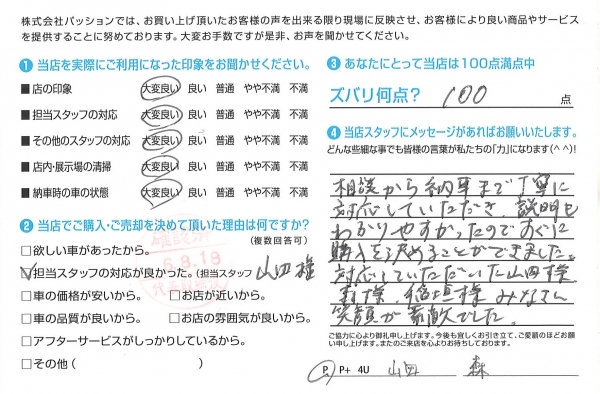 株式会社パッションでは、お買い上げ頂いたお客様の声を出来る限り現場に反映させ、お客様により良い商品やサービス
を提供することに努めております。大変お手数ですが是非、お声を聞かせてください。
① 当店を実際にご利用になった印象をお聞かせください。
■ 店の印象 大変良い 良い 普通 やや不満 不満
■ 担当スタッフの対応 大変良い 良い 普通 やや不満 不満
■ その他のスタッフの対応 大変良い 良い 普通 やや不満 不満
■ 店内・展示場の清掃 大変良い 良い 普通 やや不満 不満
■ 納車時の車の状態 大変良い 良い 普通 やや不満 不満
② 当店でご購入・ご売却を決めて頂いた理由は何ですか?
(複数回答可)
□欲しい車があったから。
□担当スタッフの対応が良かった。(担当スタッフ 山田様
□車の価格が安いから。 □お店が近いから。
□車の品質が良いから。 □お店の雰囲気が良いから。
□アフターサービスがしっかりしているから。
□その他 ( )
確認済
6.8.18
③ あなたにとって当店は100点満点中
ズバリ何点? 100 点
④ 当店スタッフにメッセージがあればお願いいたします。
どんな些細な事でも皆様の言葉が私たちの「力」になります(^ ^)!
相談から納車まで丁寧に
対応していただき、説明も
わかりやすかったのですぐに
購入を決めることができました。
対応していただいた山田様、
森様、稲垣様 みなさん
笑顔が素敵でした。
ご協力に心より御礼申し上げます。今後も宜しくお引き立て、ご愛顧のほどお願
い申し上げます。またのご来店を心よりお待ちしております。
P P+ 4U 山田 森